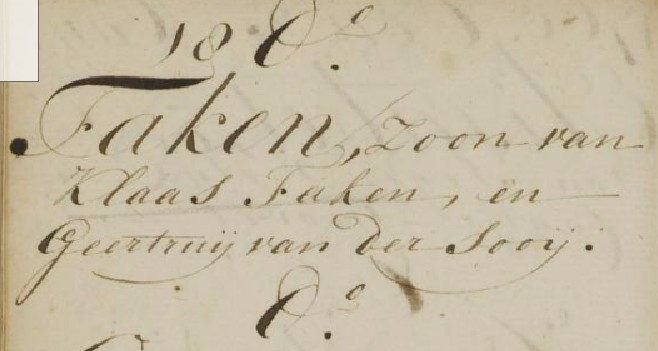 18 d.º
Faken, zoon van
Klaas Faken, en
Geertruij van der Sooij.
d.º